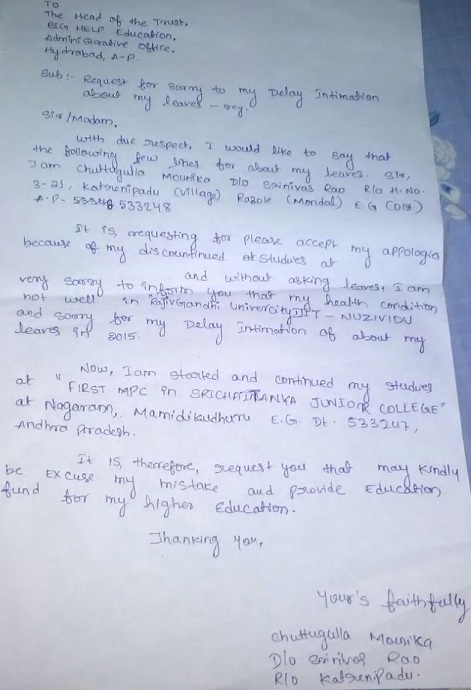 TO
The Head of the Trust,
BIG HELP Education,
Administrative Office,
Hydrabad, A-P.
Sub:- Request for sorry to my Delay Intimation
about my leaves - reg.
Sir/Madam,
With due respect, I would like to say that
the following few lines for about my leaves. Sir,
I am Chuttugulla Mounika D/o Srinivas Rao R/o H.No.
3-21, Katrenipadu (village) Razole (Mondal) E G (Dist)
A-P- 533248
It is requesting for please accept my appologie
because of my discountinued of studies at
and without asking leaves, I am
very sorry to inform you that my health condition
not well in RajivGandhi University IIIT - NUZIVIDU
and sorry for my Delay Intimation of about my
leaves in 2015.
Now, I am started and continued my studies
at "FIRST MPC in SRICHAITANYA JUNIOR COLLEGE"
at Nagaram, Mamidikudhuru E.G. Dt. 533247,
Andhra Paradesh.
It Is, therefore, request you that may kindly
be Excuse my mistake and provide Education
fund for my higher Education.
Thanking You,
Your's faithfully
Chuttugulla Mounika
D/o Srinivas Rao
R/o Katrenipadu.